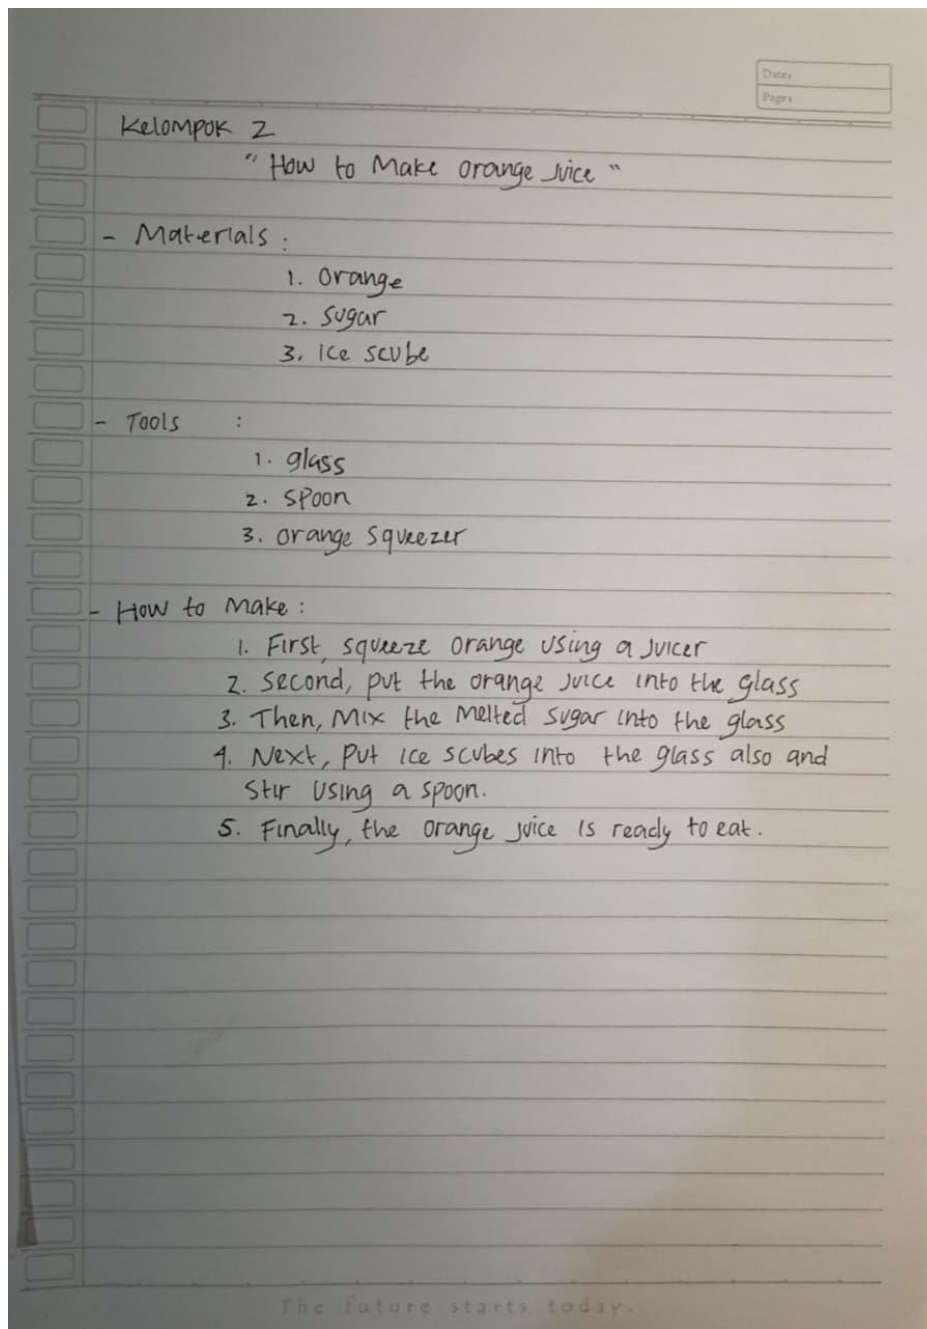 Date:
Page:
Kelompok 2
" How to Make orange juice "
- Materials :
1. orange
2. sugar
3. ice scube
- Tools :
1. glass
2. spoon
3. orange squeezer
- How to Make :
1. First, squeeze orange using a juicer
2. second, put the orange juice into the glass
3. Then, Mix the Melted sugar into the glass
4. Next, put ice scubes into the glass also and
stir using a spoon.
5. Finally, the orange juice is ready to eat.
The future starts today.